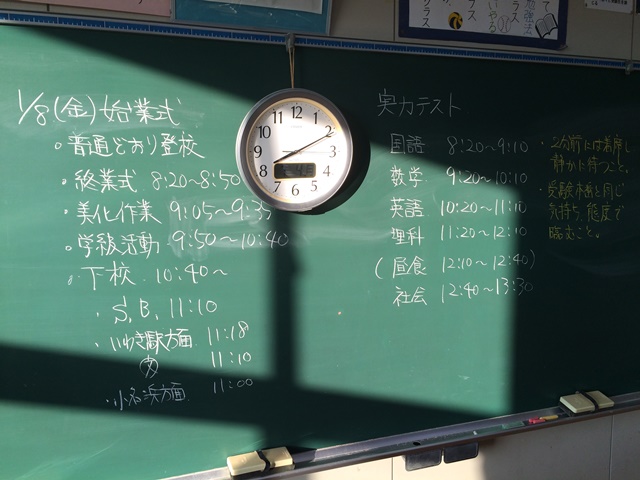 1/8(金)始業式
。普通どおり登校
・終業式 8:20~8:50
・美化作業 9:05~9:35
・学級活動 9:50~10:40
。下校 10:40~
・S.B. 11:10
・いわき駅方面 11:18
11:10
・小名浜方面 11:00
12
1
2
3
4
5
6
7
8
9
10
11
実力テスト
国語 8:20~9:10
数学 9:20~10:10
英語 10:20~11:10
理科 11:20~12:10
(昼食 12:10~12:40)
社会 12:40~13:30
静かに待つこと。
・受験本番と同じ
気持ち、態度で
臨むこと。